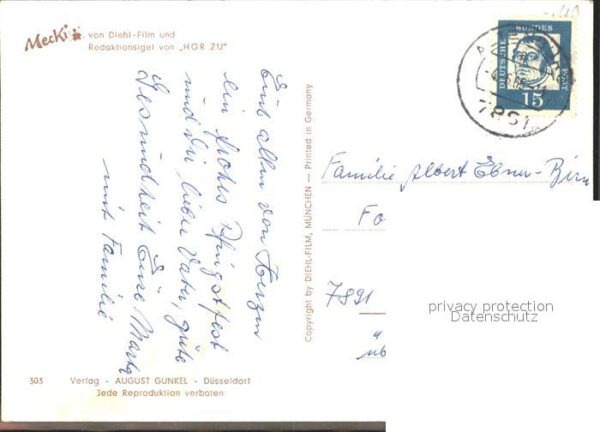 Mecki von Diehl-Film und
Redaktionsigel von „HÖR ZU"
Euch allen von Herzen
ein frohes Pfingstfest
und Dir lieber Vater, gute
Gesundheit Eure Martha
mit Familie
Copyright by DIEHL-FILM, MÜNCHEN — Printed in Germany
DEUTSCHE BUNDES POST
15
7891
Familie Albert Ebner-Birn
Fo
7891
ü
üb
privacy protection
Datenschutz
303 Verlag - AUGUST GUNKEL - Düsseldorf
Jede Reproduktion verboten